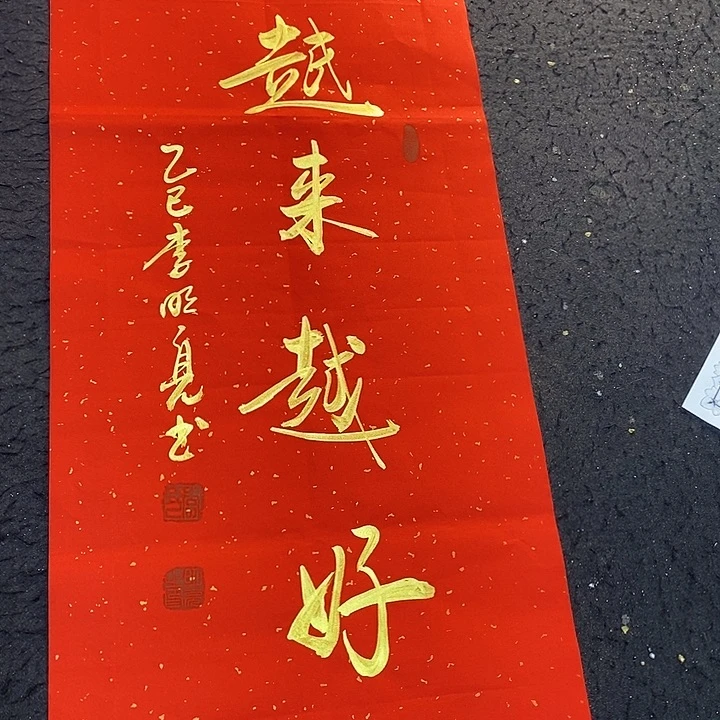 越来越好
乙巳李明亮书